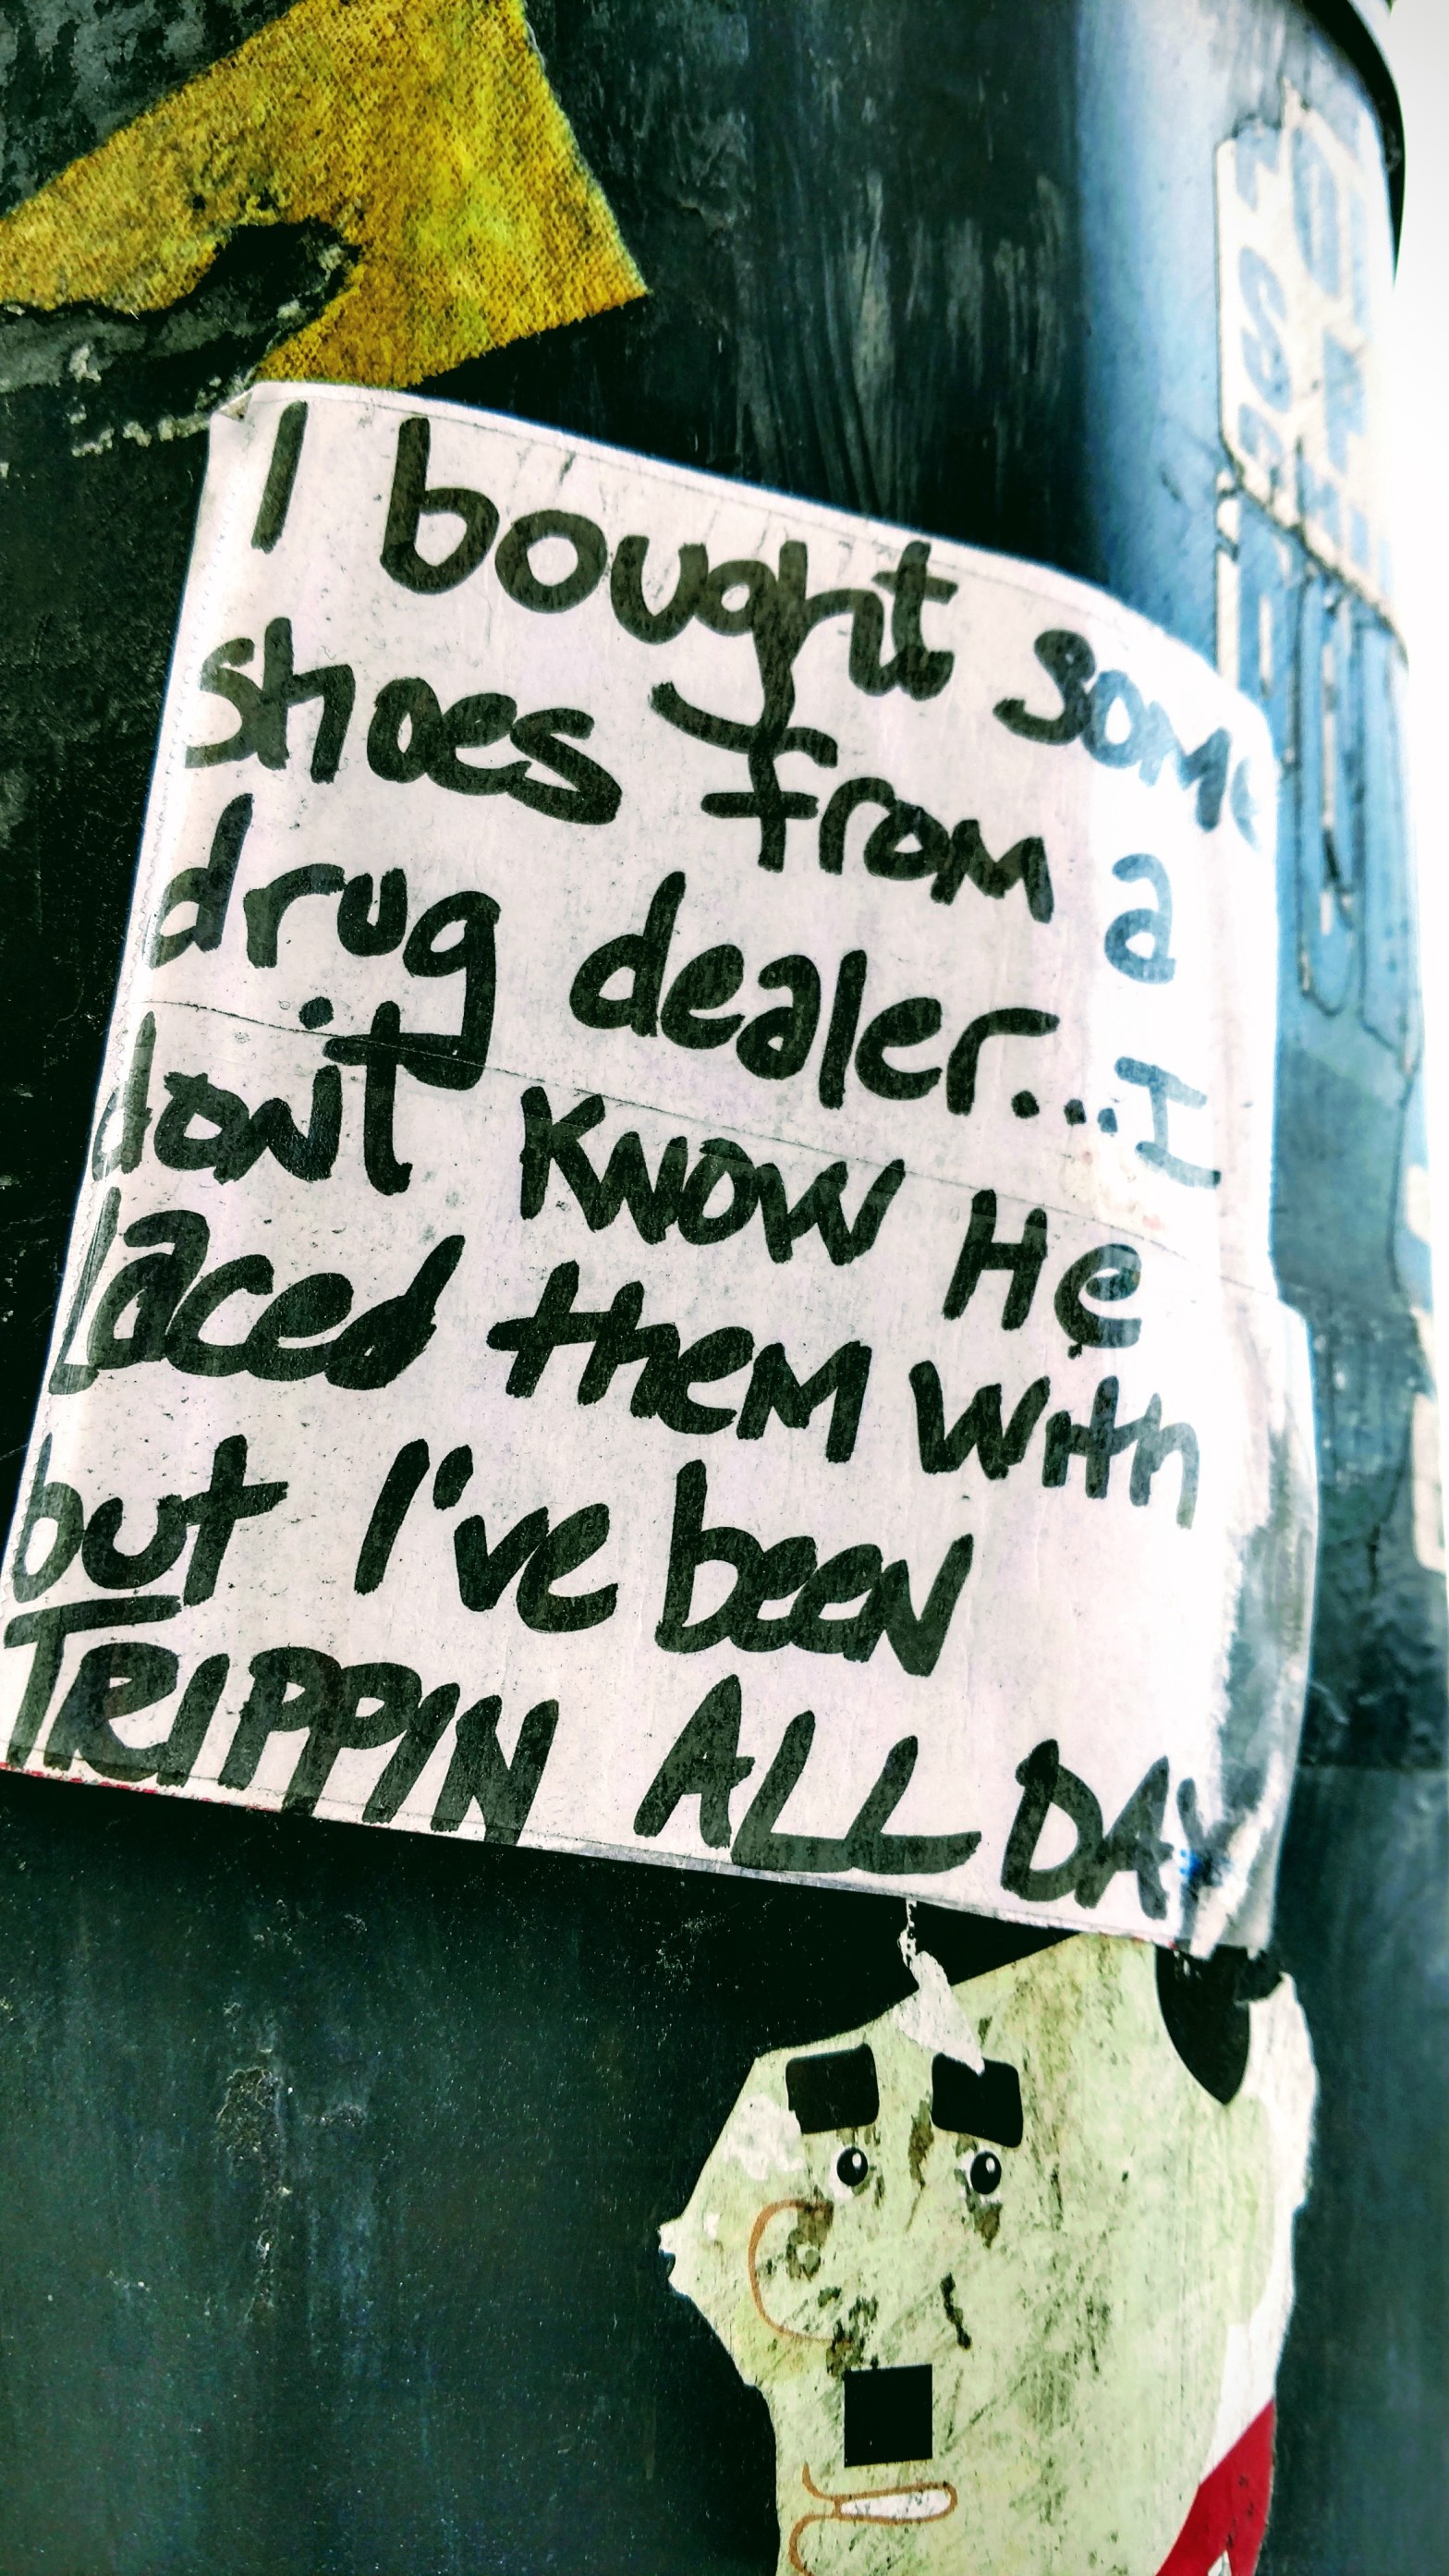 I bought some
shoes from a
drug dealer... I
don't know He
laced them with
but I've been
TRIPPIN ALL DAY